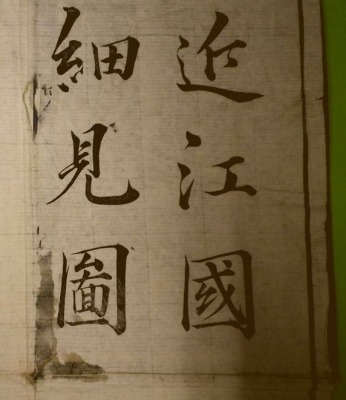 近江國
細見圖